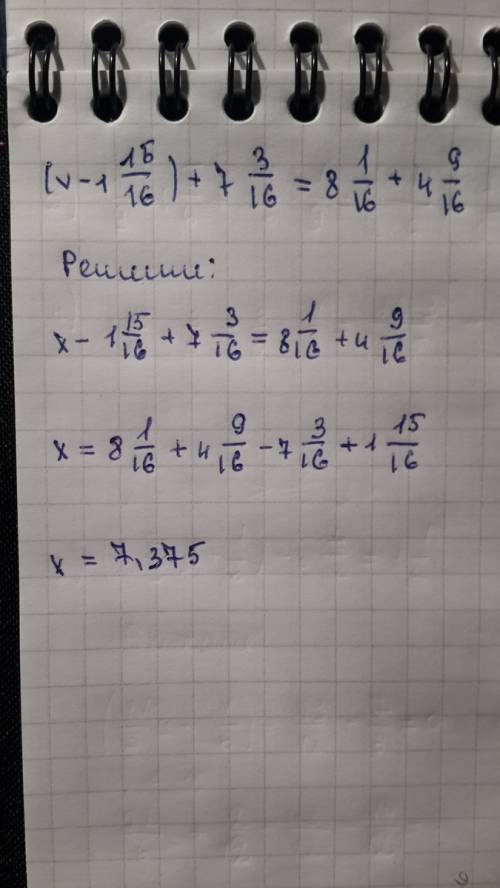 (v - 1 15/16) + 7 3/16 = 8 1/16 + 4 9/16
Решиши:
x - 1 15/16 + 7 3/16 = 8 1/16 + 4 9/16
x = 8 1/16 + 4 9/16 - 7 3/16 + 1 15/16
x = 7,375